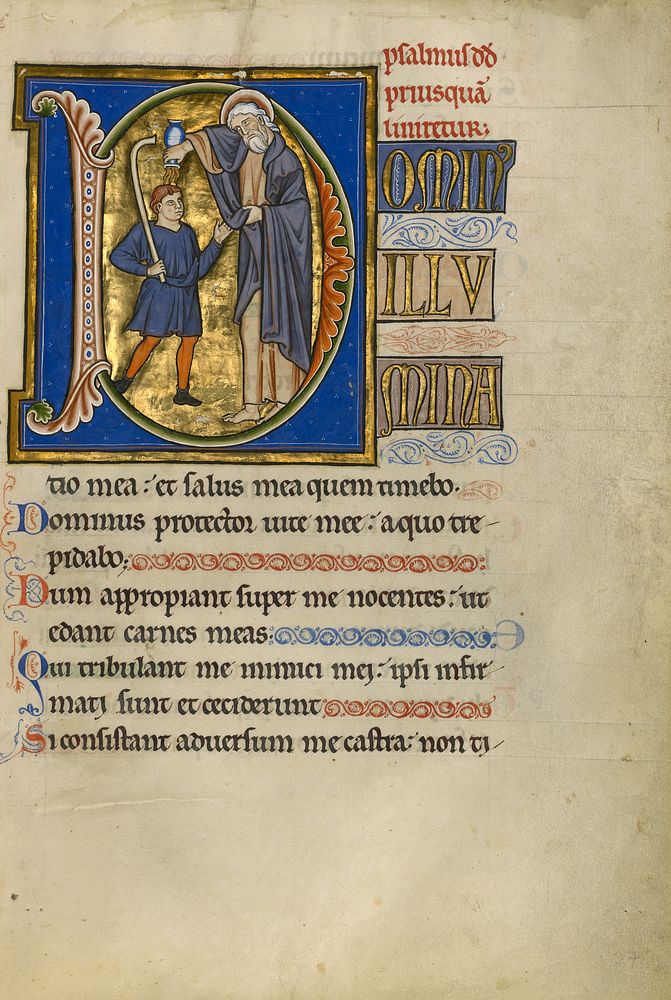 psalmus dd̄
priusquā
liniretur;
DOMINꝰ
ILLV
MINA
tio mea: et salus mea quem timebo.
Dominus protector uite mee: a quo tre-
pidabo;
Dum appropiant super me nocentes: ut
edant carnes meas:
Qui tribulant me inimici mei: ipsi infir
mati sunt et ceciderunt
Si consistant aduersum me castra: non ti-